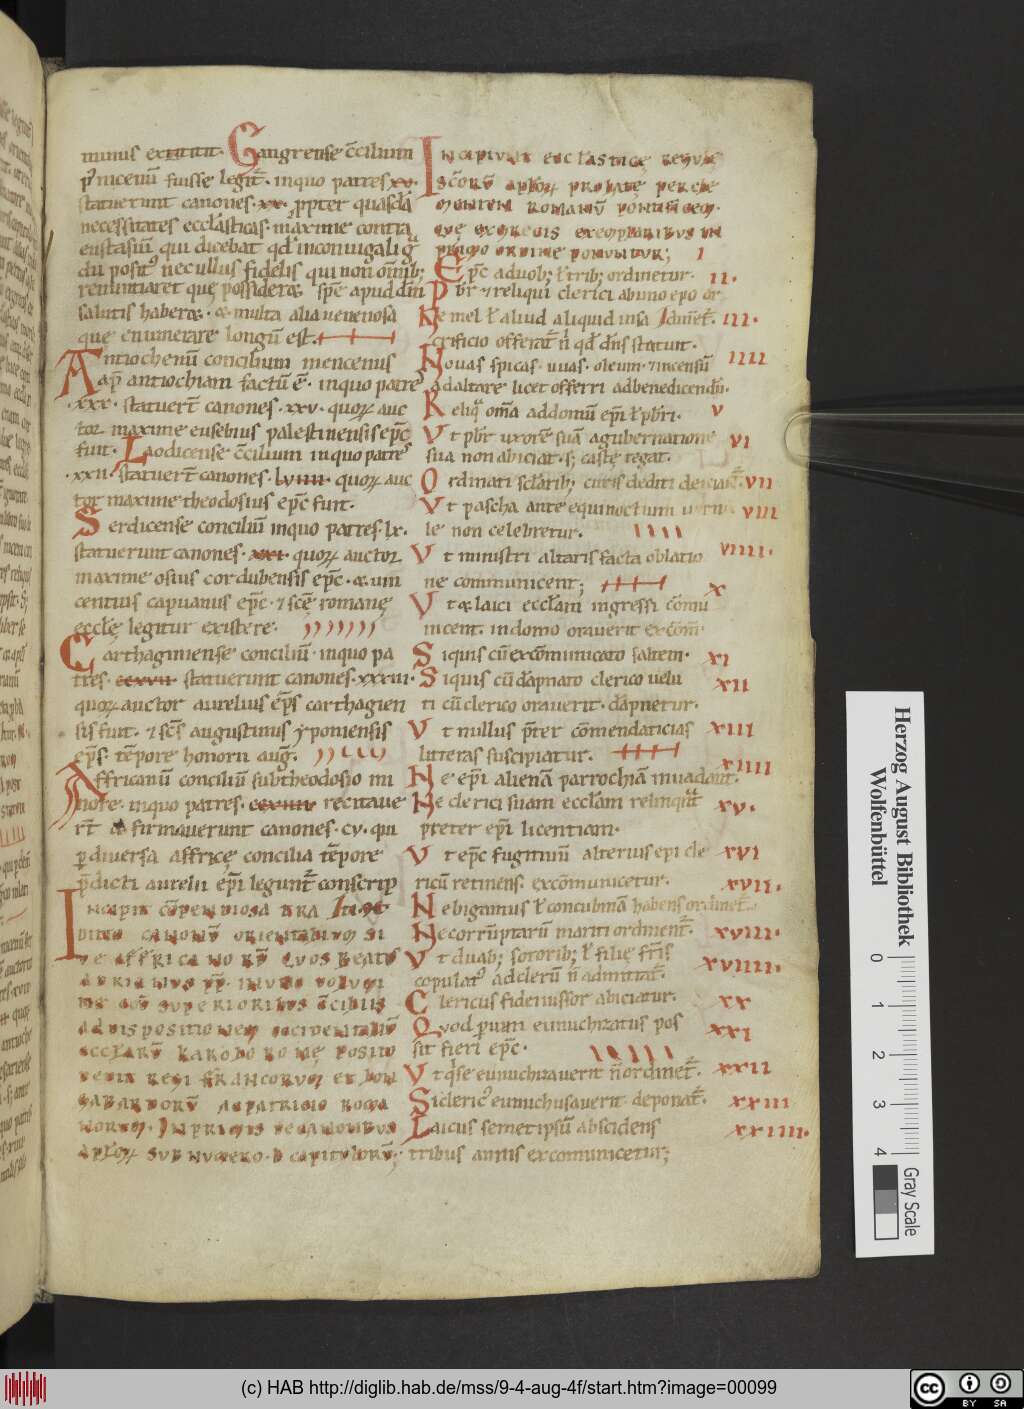 minus extitit. Gangrense c̄cilium
p̄ nicenū fuisse legit̄. inquo patres xv.
statuerunt canones. xx. ꝓpter quasdā
necessitates eccl̄asticas. maxime contra
eustasiū qui dicebat qd̄ inconiugali g̃
du posit᷒ nec ullus fidelis qui non om̄ib;
renuntiaret quę possideræ spē apud dm̄
salutis haberæ. & multa alia uenenosa
que enumerare longū est.
Antiochenū concilium mencenis
ap̄ antiochiam factū ē. inquo patres
xxx. statuert̄ canones. xxv. quoꝝ auc
tor maxime eusebius palestinensis ep̄c
fuit. Laodicense c̄cilium inquo patres
xxii. statuert̄ canones. lviiii. quoꝝ auc
tor maxime theodosius ep̄c fuit.
Serdicense conciliū inquo patres. lx.
statuerunt canones. xxi. quoꝝ auctor
maxime osius cordubensis ep̄c. & uin
centius capuanus ep̄c. & scę̄ romanę
eccl̄ę legitur existere.
Carthaginiense conciliū. inquo pa
tres. ccxvii. statuerunt canones. xxxiii.
quoꝝ auctor aurelius ep̄s carthagien
sis fuit. & sc̄s augustinus yponiensis
ep̄s. tēpore honorii aug̃.
Affricanū conciliū sub theodosio mi
nore. inquo patres. ccxiiii. recitaue
rt̄ & firmauerunt canones. cv. qui
ꝑ diuersa affricę concilia tēpore
p̄dicti aurelii ep̄i legunt̄ conscrip
Incipit cōpendiosa tra
canonū orientaliū si
ue affricanorū quos beatus
adrianus pp̄. in uno uolumi
ne cū superioribus c̄ciliis
ad dispositionem occidentaliū
eccl̄arū karolo romę posito
dedit regi francorum et lon
gabardorū ac patricio roma
norum. In primis de canonibus
apl̄oꝝ sub numero. l. capitulorū;
Incipiunt ecclasticę regulę
sc̄orū apl̄oꝝ prolatę per cle
mentem romanū pontificem.
quę ex grecis exemplaribus in
primo ordine ponuntur; I
Ep̄c a duob; ł trib; ordinetur. II.
Pbr̄ & reliqui clerici ab uno ep̄o or
Ne mel ł aliud aliquid in sa dinet̄. III.
crificio offerat̄ n̄ qd̄ dn̄s statuit.
Nouas spicas. uuas. oleum. & incensū IIII
ad altare licet offerri ad benedicendū.
Reliq̄ om̄a ad domū ep̄i ł pbr̄i. V
Ut pbr̄ uxorē suā a gubernatione VI
sua non abiciat. s; castę regat.
Ordinati sclarib; curis dediti deiciant̄. VII
Ut pascha ante equinoctium uerna VIII
le non celebretur.
Ut ministri altaris facta oblatio VIIII.
ne communicent;
Ut & laici eccl̄am ingressi cōmu X
nicent. in domo orauerit excōm̄.
Siquis cū excōmunicato saltem. XI
Siquis cū dāpnato clerico uelu XII
ti cū clerico orauerit. dāpnetur.
Ut nullus p̄ter cōmendaticias XIII
litteras suscipiatur.
Ne ep̄i alienā parrochiā inuadant. XIIII
Ne clerici suam eccl̄am relinquāt XV.
preter ep̄i licentiam.
Ut ep̄c fugitiuū alterius ep̄i cle XVI
ricū retinens. excōmunicetur.
Ne bigamus ł concubinā habens ordinet̄. XVII.
Ne corruptarū mariti ordinent̄. XVIII.
Ut duab; sororib; ł filię fr̄is XVIIII.
copulat᷒ ad clerū n̄ admittat̄.
Clericus fideiussor abiciatur. XX
Quod ꝑ uim eunuchizatus pos XXI
sit fieri ep̄c.
Ut q̄ se eunuchizauerit n̄ ordinet̄. XXII
Si cleric᷒ eunuchusauerit deponat̄. XXIII
Laicus semetipsū abscidens XXIIII.
tribus annis excomunicetur;
Herzog August Bibliothek
Wolfenbüttel
0 1 2 3 4
Gray Scale
(c) HAB http://diglib.hab.de/mss/9-4-aug-4f/start.htm?image=00099
cc BY SA